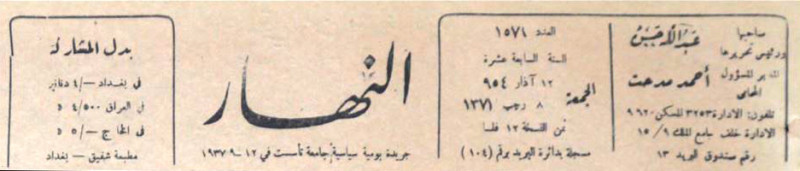 صاحبها
ورئيس تحريرها
عبد الله حسن
المدير المسؤول
المحامي
أحمد مدحت
تلفون: الادارة ٣٢٥٣ المسكن ٩٦٢٠
الادارة خلف جامع الملك ١٥/٩
رقم صندوق البريد ١٣
العدد ١٥٧١
السنة السابعة عشرة
الجمعة
١٢ آذار ٩٥٤
٨ رجب ١٣٧١
ثمن النسخة ١٢ فلسا
مسجلة بدائرة البريد برقم (١٠٤)
النهار
جريدة يومية سياسية جامعة تأسست في ١٢-٩-١٩٣٧
بدل المشاركة
في بغداد -/٤ دنانير
في العراق ٤/٥٠٠ د
في الخارج -/٥ د
مطبعة شفيق - بغداد